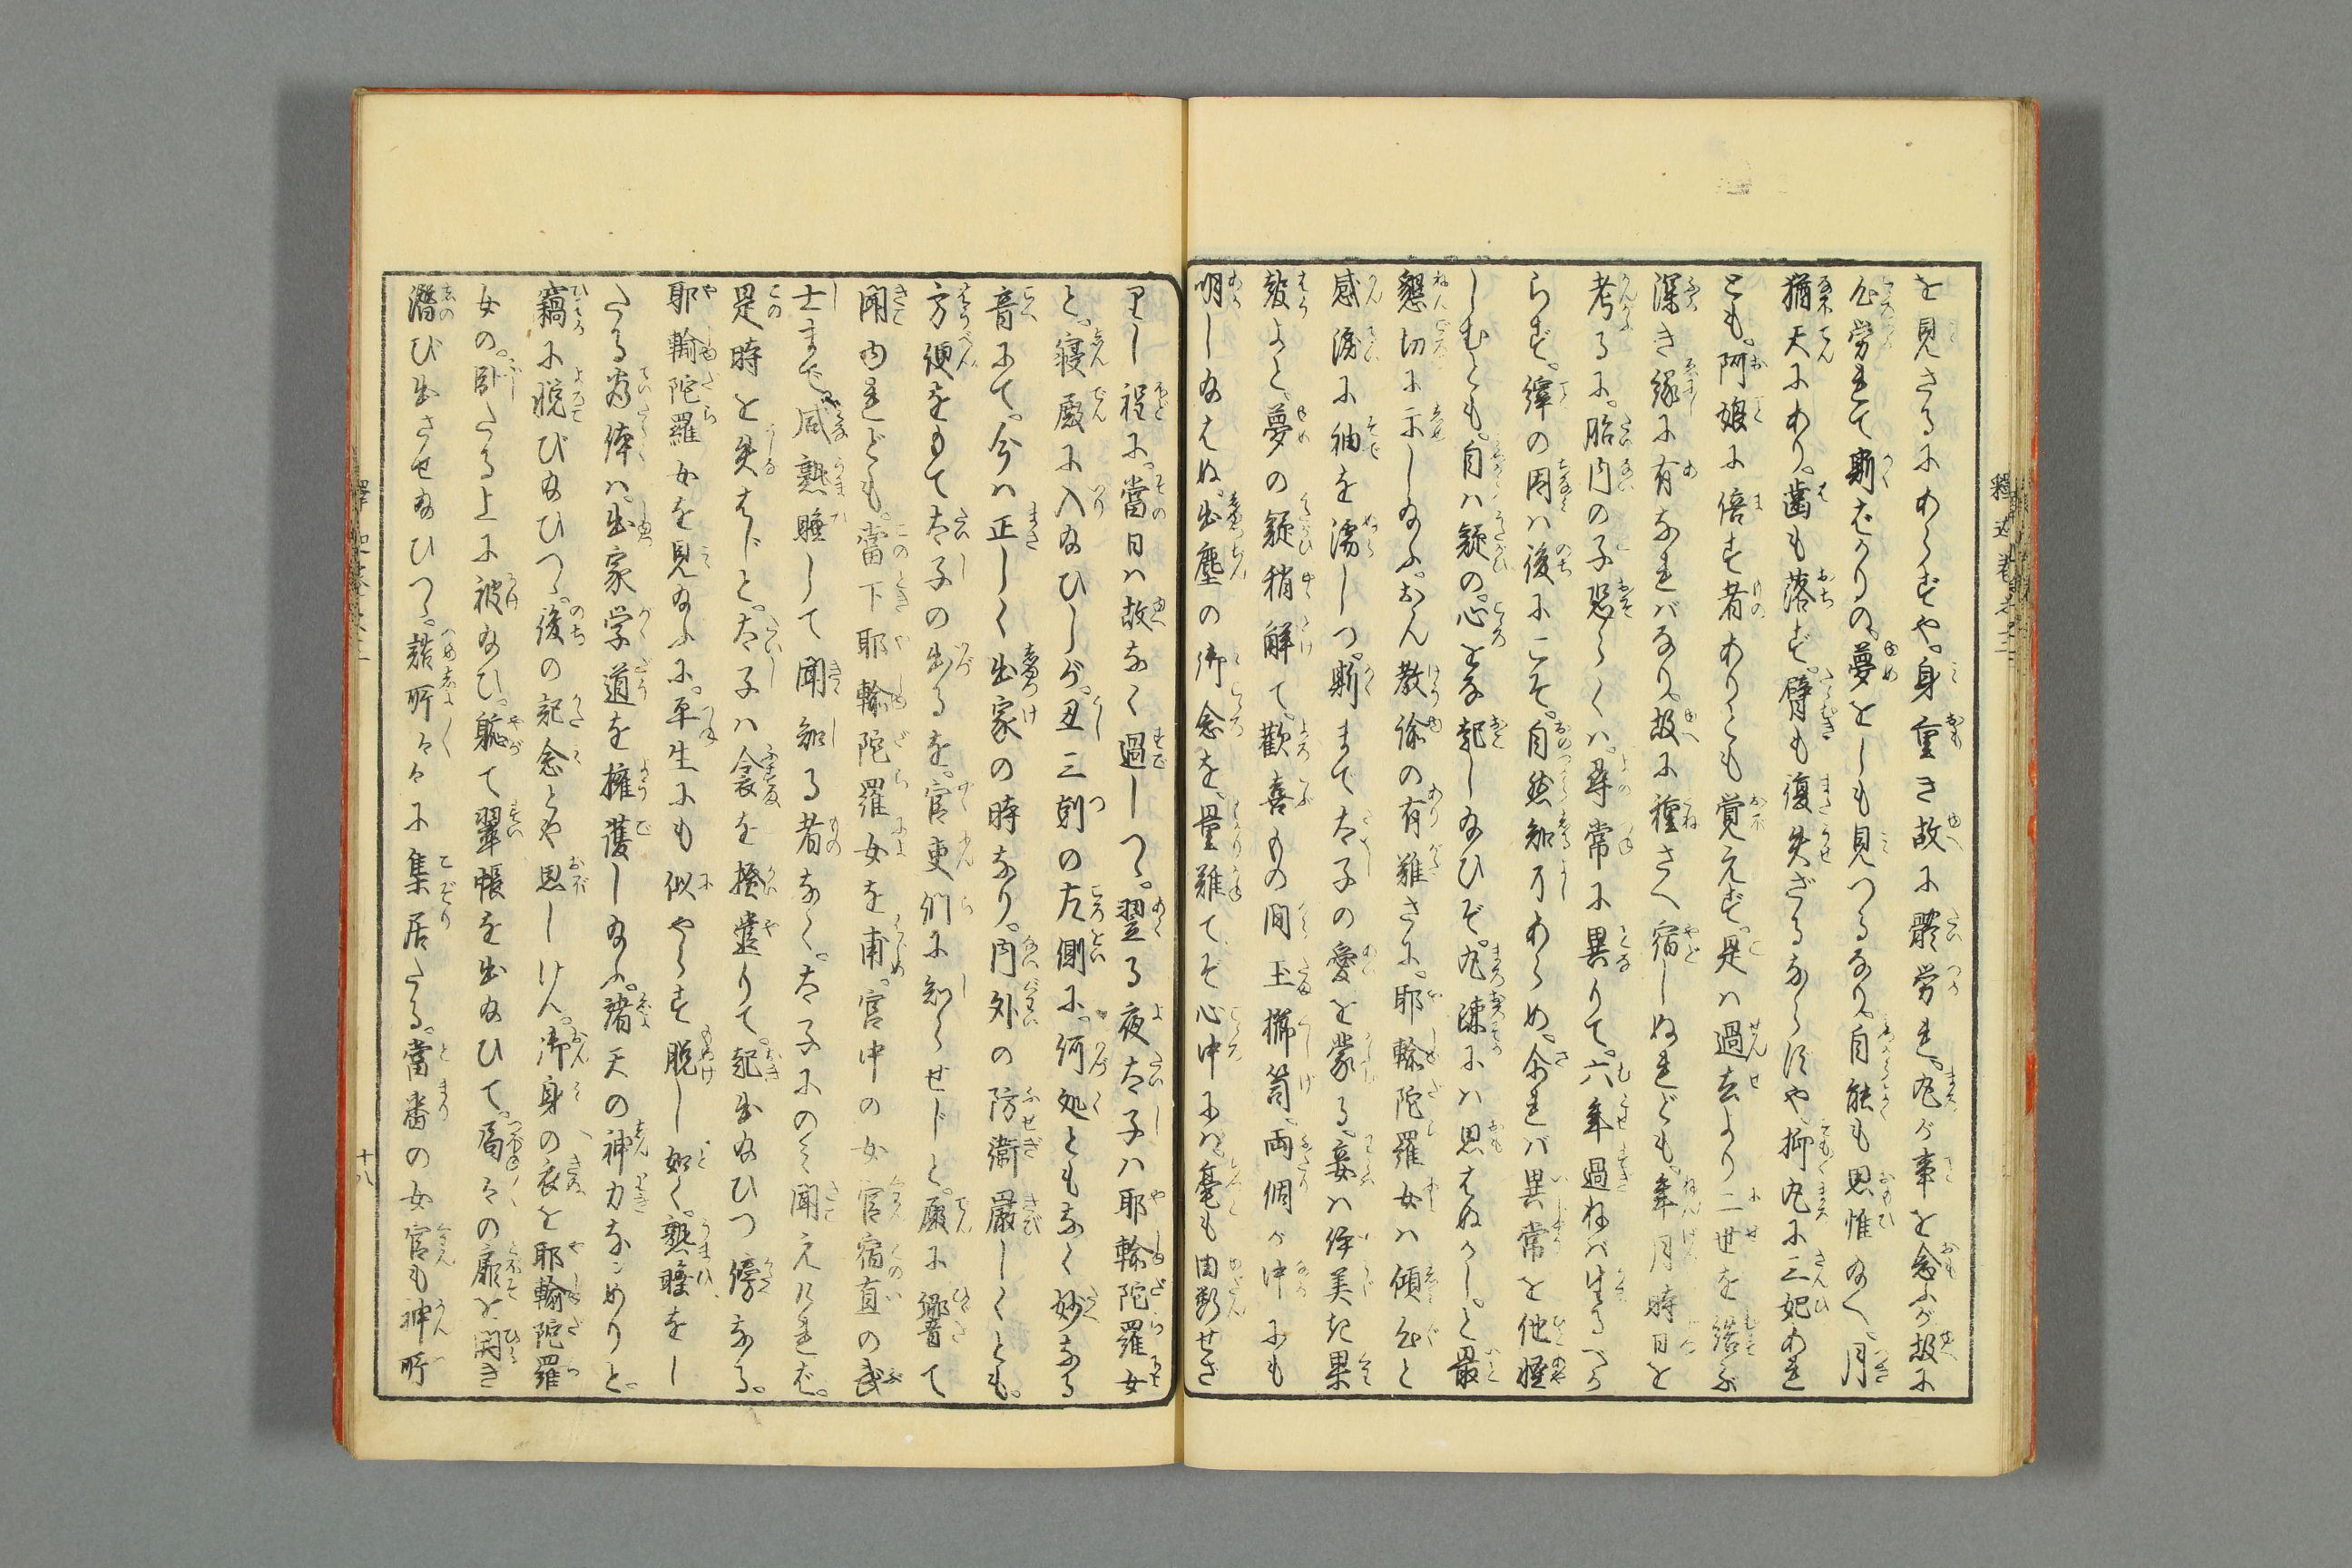 を見さるにあらずや。身重き故に體労れ。丸が事を念ふが故に
心労れて斯ばかりの。夢をしも見つるなり。自能も思惟給へ。月
猶天にあり。歯も落ず。臂も復失ざるならずや。抑丸に三妃あれ
ども。阿嬢に倍す者ありとも覚えず。是は過去より二世を結ぶ
深き縁に有なればなり。故に種さへ宿しぬれども。年月時日を
考るに。胎内の子恐らくは。尋常に異りて。六年過ねば生るべか
らず。繹の因は後にこそ。自然知了あらめ。然れば異常を他怪
しむとも。自は疑の。心をな起し給ひぞ。丸疎には思はぬかし。と最
懇切に示し給ふ。おん教諭の有難さに。耶輸陀羅女は傾心と
感涙に袖を濡しつ。斯まで太子の愛を蒙る。妾は伊美き果
報よと。夢の疑稍解て。歓喜ものの間玉櫛笥。両個が中にも
明し給はぬ。出塵の御念を。量難てぞ心中には。毫も由断せざ
りし程に。當日は故なく過しつ。翌る夜太子は耶輸陀羅女
と。寝殿に入給ひしが。丑三剋の左側に。何処ともなく妙なる
音にて。今は正しく出家の時なり。門外の防衛厳しくとも。
方便をもて太子の出るを。官吏們に知らせじと。殿に響て
聞ゆれども。當下耶輸陀羅女を甫。官中の女官宿直の武
士まで。咸熟睡して聞知る者なく。太子にのみ聞えければ。
是時を失はじと。太子は衾を掻遣りて。起出給ひつ傍なる。
耶輸陀羅女を見給ふに。平生にも似やらず脱し如く。熟睡をし
たる為体は。出家学道を擁護し給ふ。諸天の神力なンめりと。
竊に脱び給ひつゝ。後の記念とや思しけん。御身の衣を耶輸陀羅
女の。臥たる上に被給ひ。軈て翠帳を出給ひて。局々の扉を開き
潛び出させ給ひつゝ。諸所々々に集居たる。當番の女官も神所
釋迦巻之三
十八